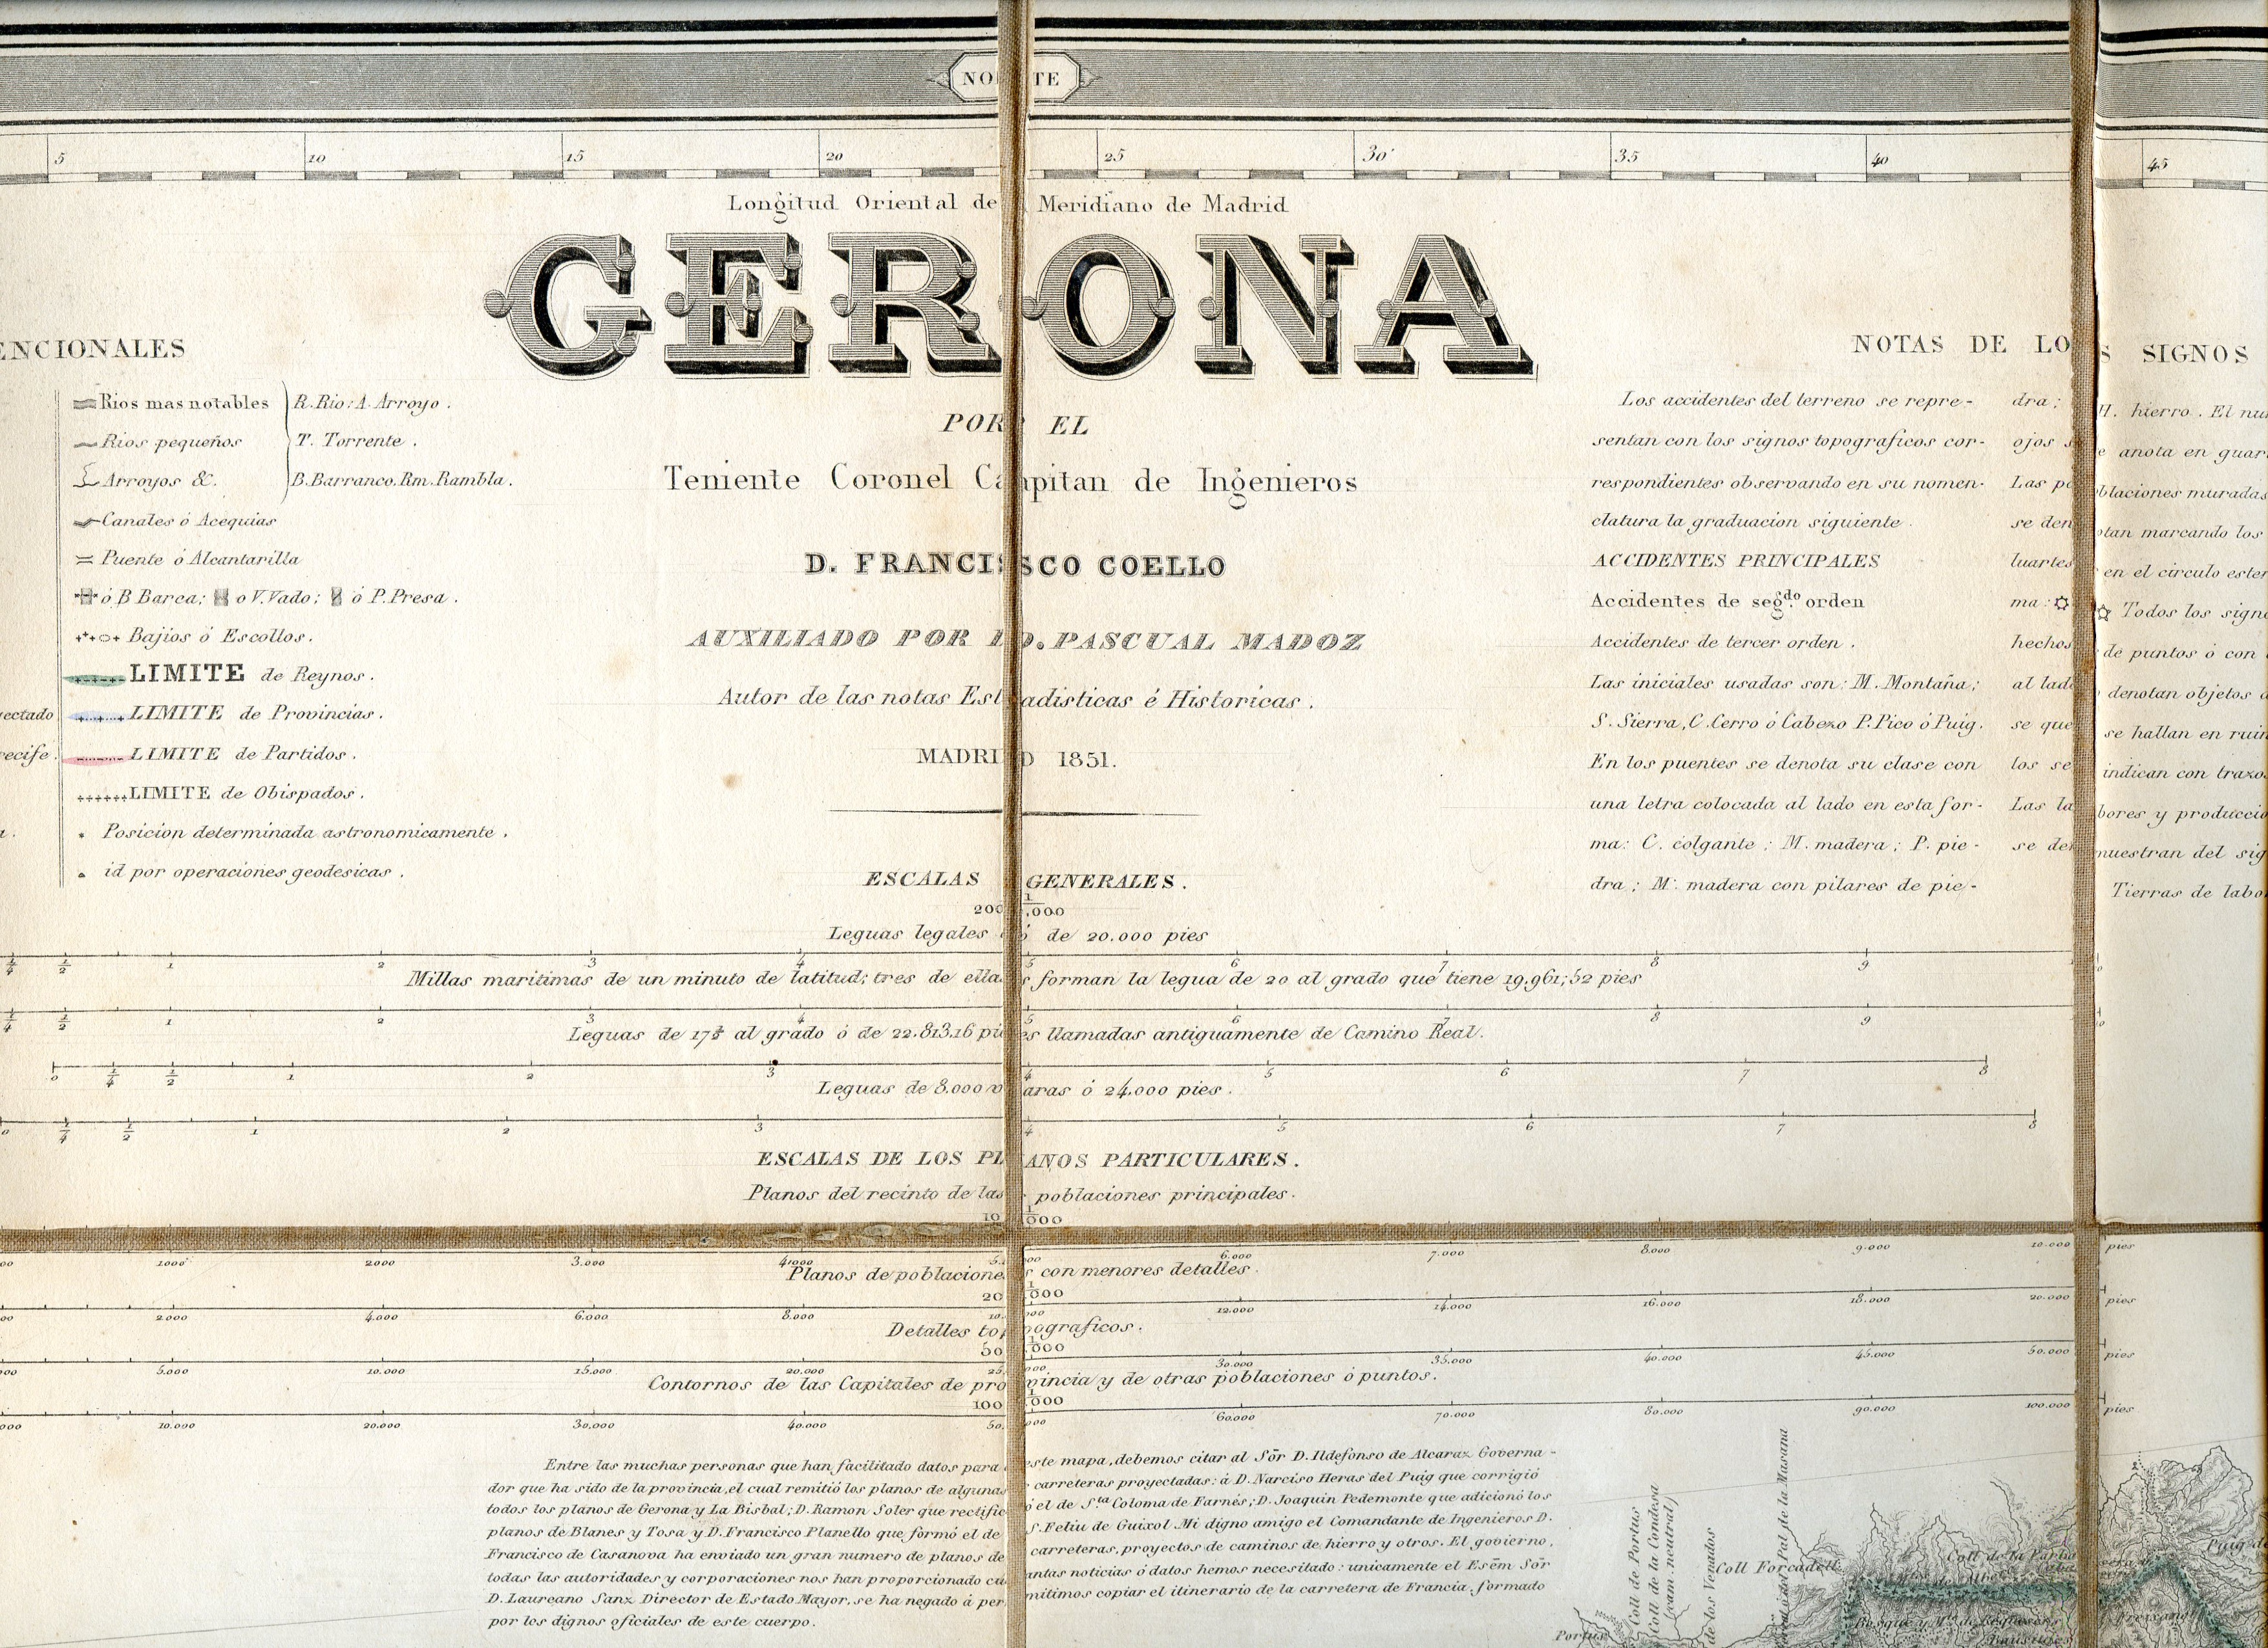 NO TE
5 10 15 20 25 30' 35 40 45
Longitud Oriental de Meridiano de Madrid
GERONA
ENCIONALES
Rios mas notables
Rios pequeños
Arroyos &.
R. Rio: A. Arroyo.
T. Torrente.
B. Barranco. Rm. Rambla.
Canales ó Acequias
Puente ó Alcantarilla
ó B Barca; o V. Vado; ó P. Presa.
Bajios ó Escollos.
LIMITE de Reynos.
ectado
LIMITE de Provincias.
recife.
LIMITE de Partidos.
LIMITE de Obispados.
Posicion determinada astronomicamente.
id por operaciones geodesicas.
POR EL
Teniente Coronel Capitan de Ingenieros
D. FRANCISCO COELLO
AUXILIADO POR D. PASCUAL MADOZ
Autor de las notas Estadisticas é Historicas.
MADRID 1851.
NOTAS DE LOS SIGNOS
Los accidentes del terreno se repre-
sentan con los signos topograficos cor-
respondientes observando en su nomen-
clatura la graduacion siguiente.
ACCIDENTES PRINCIPALES
Accidentes de segdo. orden
Accidentes de tercer orden.
Las iniciales usadas son: M. Montaña;
S. Sierra, C. Cerro ó Cabezo P. Pico ó Puig.
En los puentes se denota su clase con
una letra colocada al lado en esta for-
ma: C. colgante; M. madera; P. pie-
dra; M. madera con pilares de pie-
dra; H. hierro. El nu
ojos se anota en guar
Las poblaciones muradas
se denotan marcando los
luartes en el circulo ester
ma: Todos los sign
hechos de puntos ó con
al lado denotan objetos
se que se hallan en ruin
los se indican con trazo
Las labores y produccio
se demuestran del sig
Tierras de labo
ESCALAS GENERALES.
1
200.000
Leguas legales ó de 20.000 pies
1/4 1/2 1 2 3 4 5 6 7 8 9
Millas maritimas de un minuto de latitud; tres de ellas forman la legua de 20 al grado que tiene 19.961,52 pies
1/4 1/2 1 2 3 4 5 6 7 8 9
Leguas de 17½ al grado ó de 22.813,16 pies llamadas antiguamente de Camino Real.
0 1/4 1/2 1 2 3 4 5 6 7 8
Leguas de 8.000 varas ó 24.000 pies.
0 1/4 1/2 1 2 3 4 5 6 7 8
ESCALAS DE LOS PLANOS PARTICULARES.
Planos del recinto de las poblaciones principales.
1
10.000
1000 2000 3.000 4.000 5.000 6.000 7.000 8.000 9.000 10.000 pies
Planos de poblaciones con menores detalles.
1
20.000
2.000 4.000 6.000 8.000 10.000 12.000 14.000 16.000 18.000 20.000 pies
Detalles topograficos.
1
50.000
5.000 10.000 15.000 20.000 25.000 30.000 35.000 40.000 45.000 50.000 pies
Contornos de las Capitales de provincia y de otras poblaciones ó puntos.
1
100.000
10.000 20.000 30.000 40.000 50.000 60.000 70.000 80.000 90.000 100.000 pies
Entre las muchas personas que han facilitado datos para este mapa, debemos citar al Sōr D. Ildefonso de Alcaraz Governa-
dor que ha sido de la provincia, el cual remitió los planos de algunas carreteras proyectadas: á D. Narciso Heras del Puig que corrigió
todos los planos de Gerona y La Bisbal; D. Ramon Soler que rectificó el de Sta Coloma de Farnés; D. Joaquin Pedemonte que adicionó los
planos de Blanes y Tosa y D. Francisco Planello que formó el de S. Feliu de Guixol Mi digno amigo el Comandante de Ingenieros D.
Francisco de Casanova ha enviado un gran numero de planos de carreteras, proyectos de caminos de hierro y otros. El govierno,
todas las autoridades y corporaciones nos han proporcionado cuantas noticias ó datos hemos necesitado: unicamente el Escm̄ Sōr
D. Laureano Sanz Director de Estado Mayor, se ha negado á permitirnos copiar el itinerario de la carretera de Francia formado
por los dignos oficiales de este cuerpo.
Coll de Portus
Coll de la Condesa
(cam. neutral)
de los Venados
Pal de la Masana
Coll Forcadell
Portus